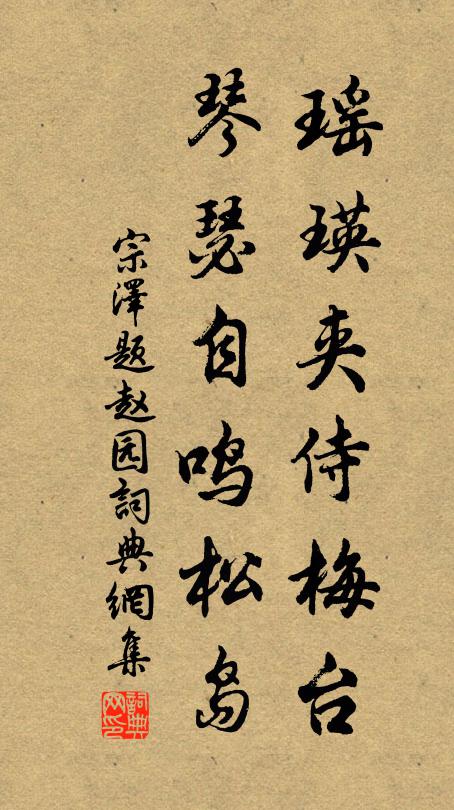 瑶瑛夹侍梅台
琴瑟自鸣松岛
宗澤题赵园詞典網集
詞典
网印